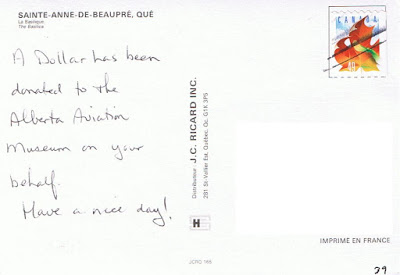 SAINTE-ANNE-DE-BEAUPRÉ, QUÉ
La Basilique
The Basilica
A Dollar has been
donated to the
Alberta Aviation
Museum on your
behalf.
Have a nice day!
Distributeur J.C. RICARD INC.
281 St-Vallier Est, Québec, Qc. G1K 3P5
H
CANADA
JCRQ 166
IMPRIMÉ EN FRANCE
39